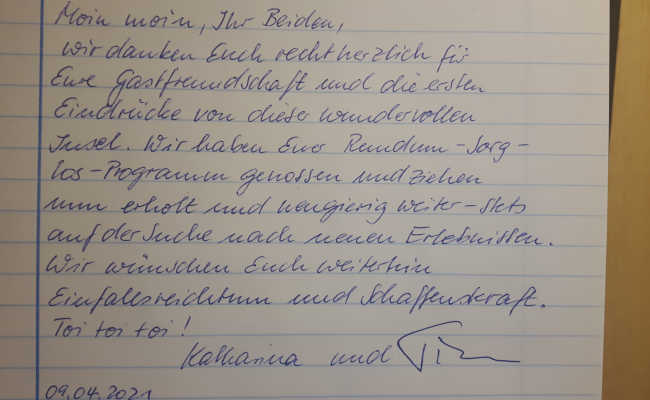 Moin moin, Ihr Beiden,
wir danken Euch recht herzlich für
Eure Gastfreundschaft und die ersten
Eindrücke von dieser wundervollen
Insel. Wir haben Euer Rundum-Sorg-
los-Programm genossen und ziehen
nun erholt und neugierig weiter - stets
auf der Suche nach neuen Erlebnissen.
Wir wünschen Euch weiterhin
Einfallsreichtum und Schaffenskraft.
Toi toi toi!
Katharina und Tim
09.04.2021